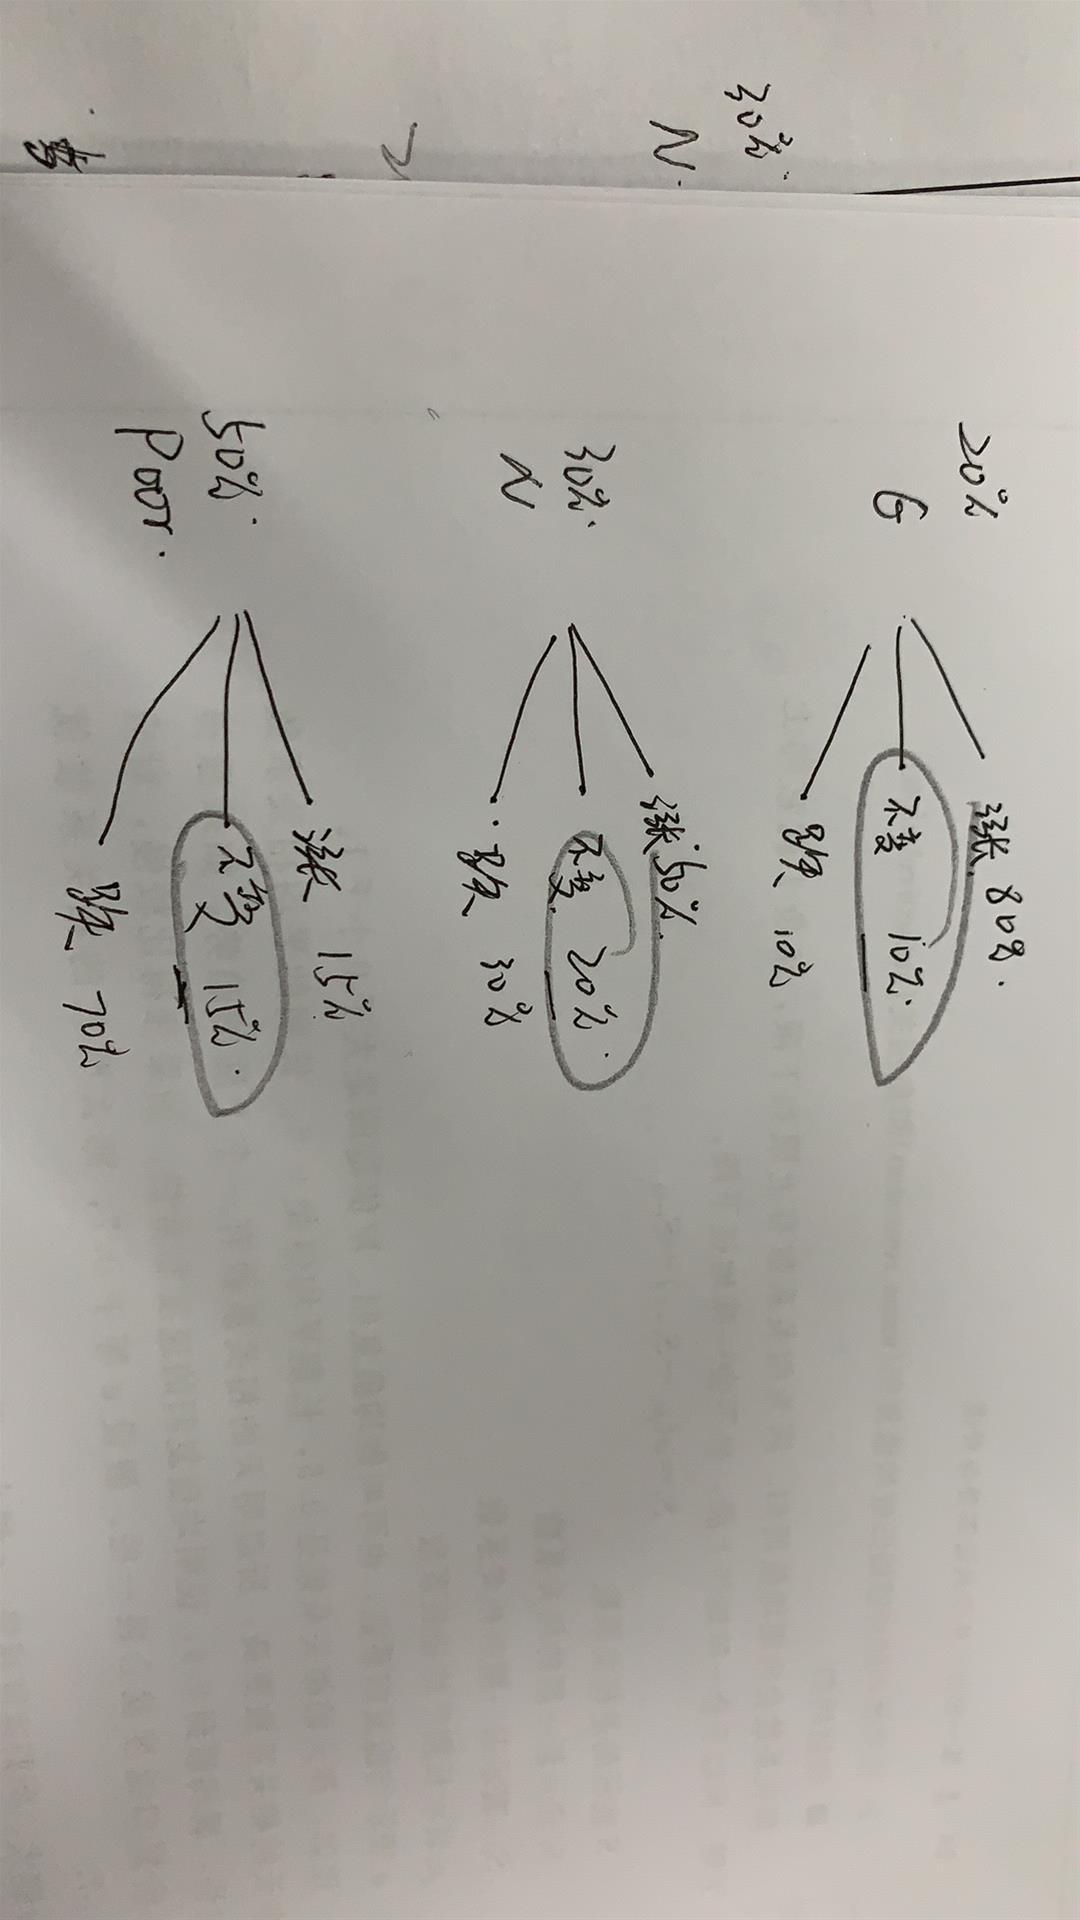 30%.
N.
20%
G
涨 80%.
不变 10%.
跌 10%
30%.
N
涨 50%.
不变 20%.
跌 30%
50%.
Poor.
涨 15%
不变 15%.
跌 70%